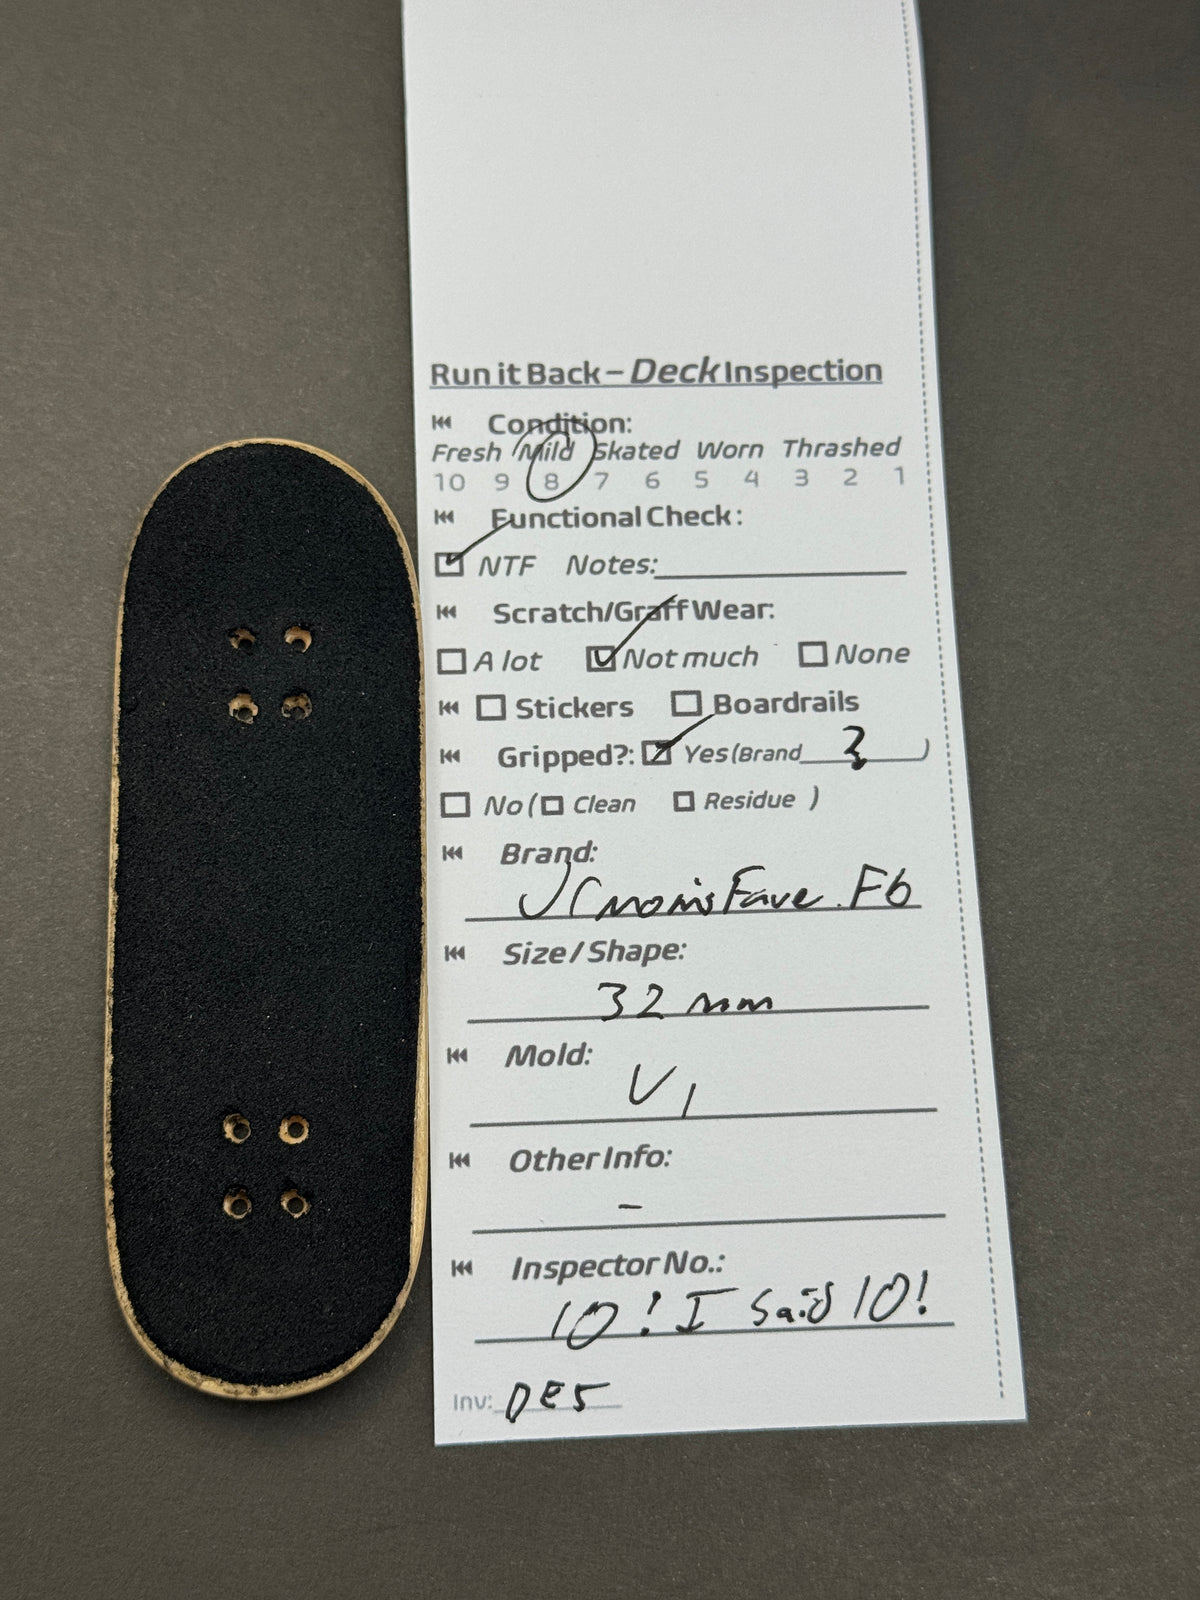 Run it Back – Deck Inspection
Condition:
Fresh Mild Skated Worn Thrashed
10 9 8 7 6 5 4 3 2 1
Functional Check:
NTF Notes:
Scratch/Graff Wear:
A lot Not much None
Stickers Boardrails
Gripped?: Yes (Brand )
No ( Clean Residue )
Brand:
Fave FB
Size / Shape:
32 mm
Mold:
V1
Other Info:
-
Inspector No.:
10! I Said 10!
Inv: DE5